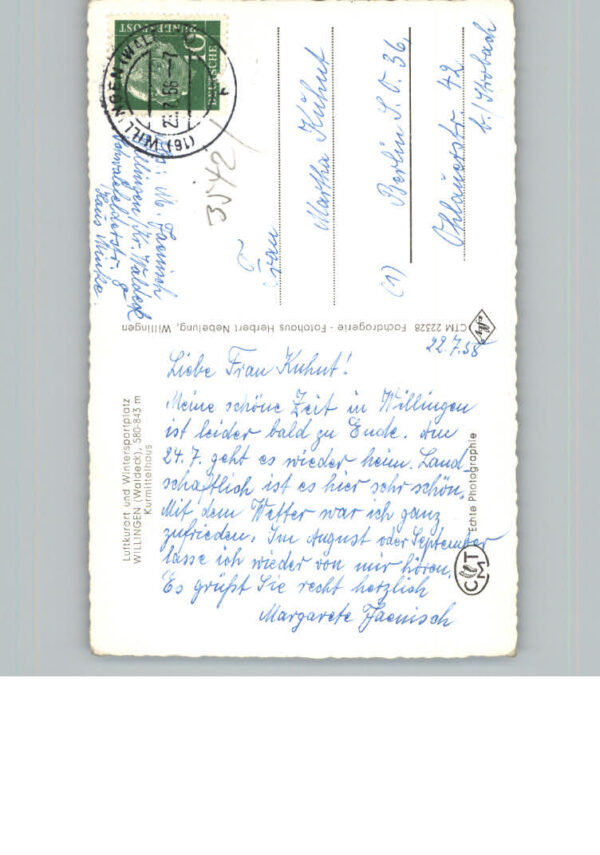 22.7.58
Liebe Frau Kuhnt!
Meine schöne Zeit in Willingen
ist leider bald zu Ende. Am
24.7. geht es wieder heim. Land-
schaftlich ist es hier sehr schön.
Mit dem Wetter war ich ganz
zufrieden. Im August oder September
lasse ich wieder von mir hören.
Es grüßt Sie recht herzlich
Margarete Jaenisch
Luftkurort und Wintersportplatz
WILLINGEN (Waldeck), 580-843 m
Kurmittelhaus
Echte Photographie
CTM
CTM 22328 Fachdrogerie - Fotohaus Herbert Nebelung, Willingen
Frau
Martha Kuhnt
(1) Berlin S.O. 36
Ohlauerstr. 42
b./Strobach
M. Jaenisch
Willingen Kr. Waldeck
Haus
3542
10
DEUTSCHE
BUNDESPOST
(16) WILLINGEN